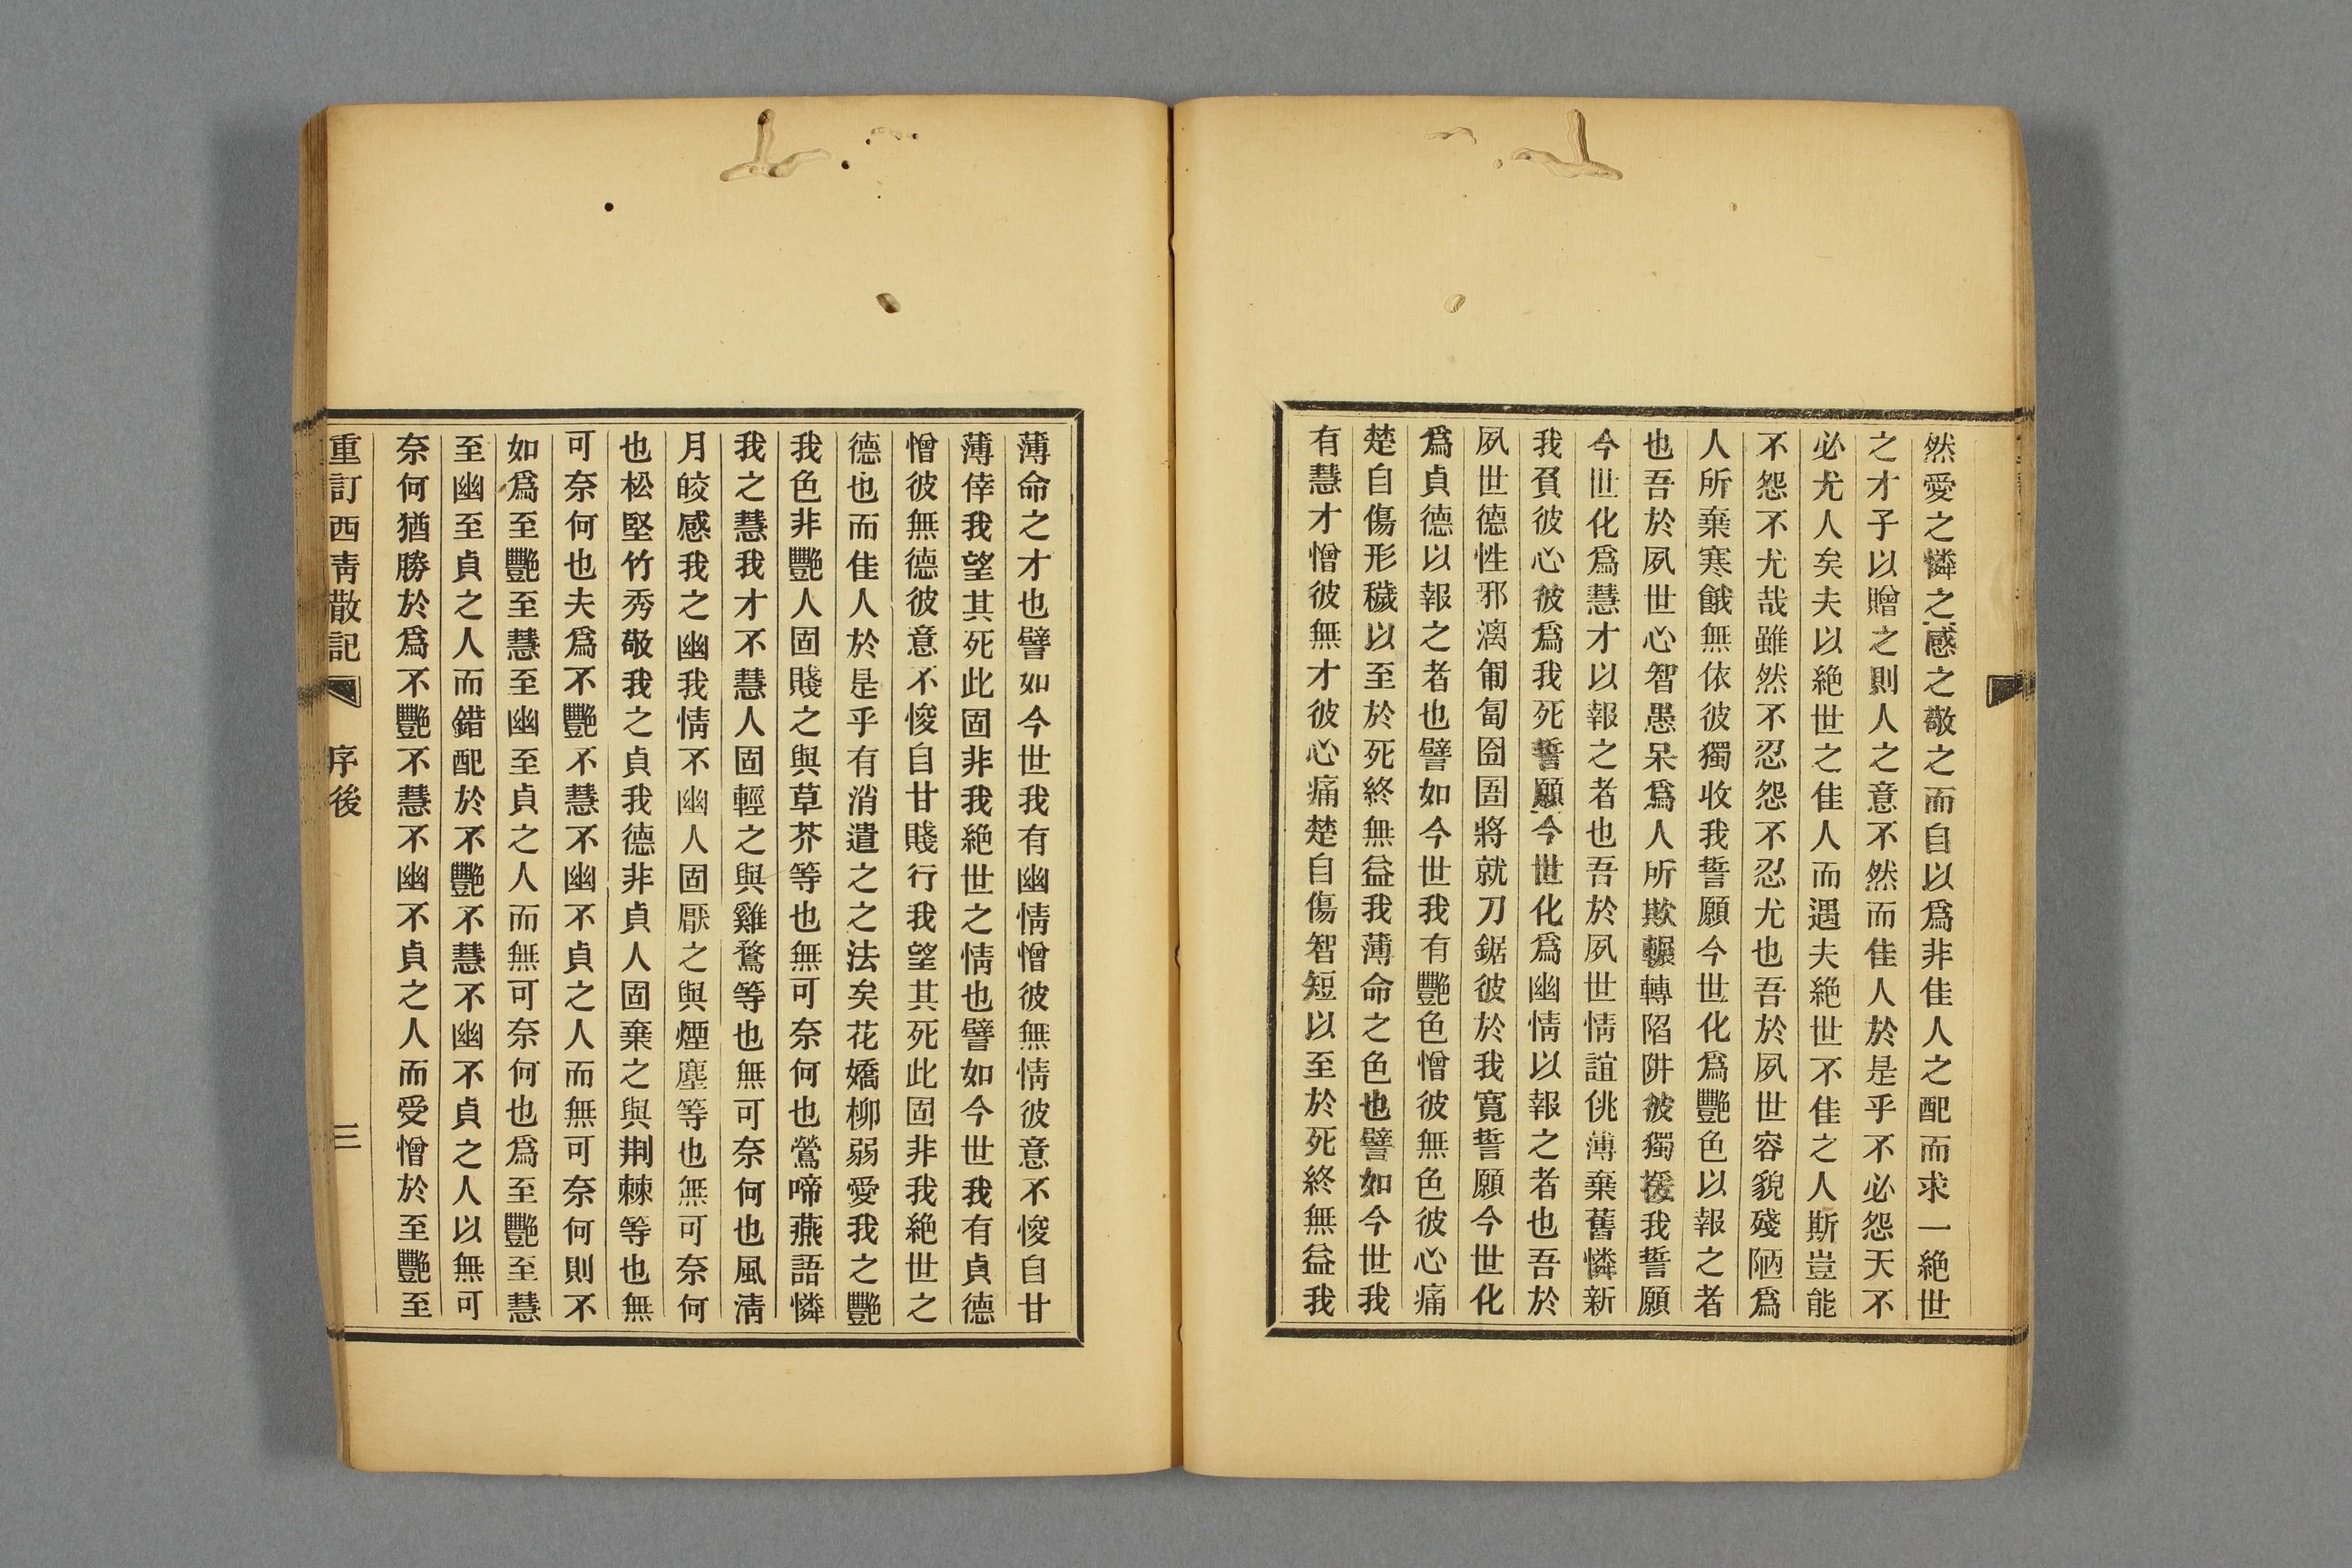 然愛之憐之感之敬之而自以爲非佳人之配而求一絶世
之才子以贈之則人之意不然而佳人於是乎不必怨天不
必尤人矣夫以絶世之佳人而遇夫絶世不佳之人斯豈能
不怨不尤哉雖然不忍怨不忍尤也吾於夙世容貌殘陋爲
人所棄寒餓無依彼獨收我誓願今世化爲豔色以報之者
也吾於夙世心智愚呆爲人所欺輾轉陷阱彼獨援我誓願
今世化爲慧才以報之者也吾於夙世情誼佻薄棄舊憐新
我負彼心彼爲我死誓願今世化爲幽情以報之者也吾於
夙世德性邪漓匍匐囹圄將就刀鋸彼於我寬誓願今世化
爲貞德以報之者也譬如今世我有豔色憎彼無色彼心痛
楚自傷形穢以至於死終無益我薄命之色也譬如今世我
有慧才憎彼無才彼心痛楚自傷智短以至於死終無益我
薄命之才也譬如今世我有幽情憎彼無情彼意不悛自甘
薄倖我望其死此固非我絶世之情也譬如今世我有貞德
憎彼無德彼意不悛自甘賤行我望其死此固非我絶世之
德也而佳人於是乎有消遣之之法矣花嬌柳弱愛我之豔
我色非豔人固賤之與草芥等也無可奈何也鶯啼燕語憐
我之慧我才不慧人固輕之與雞鶩等也無可奈何也風淸
月皎感我之幽我情不幽人固厭之與煙塵等也無可奈何
也松堅竹秀敬我之貞我德非貞人固棄之與荆棘等也無
可奈何也夫爲不豔不慧不幽不貞之人而無可奈何則不
如爲至豔至慧至幽至貞之人而無可奈何也爲至豔至慧
至幽至貞之人而錯配於不豔不慧不幽不貞之人以無可
奈何猶勝於爲不豔不慧不幽不貞之人而受憎於至豔至
重訂西靑散記 序後 三